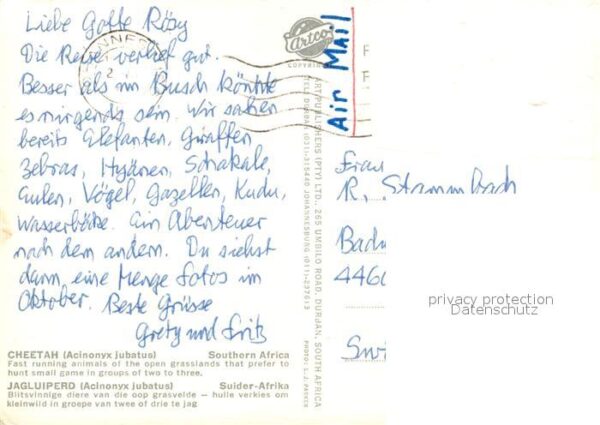 Liebe Gotte Rösy
Die Reise verlief gut.
Besser als im Busch könnte
es nirgends sein. Wir sahen
bereits Elefanten, Giraffen
Zebras, Hyänen, Schakale,
Eulen, Vögel, Gazellen, Kudu,
Wasserböcke. Ein Abenteuer
nach dem andern. Du siehst
dann eine Menge Fotos im
Oktober. Beste Grüsse
Grety und Fritz
CHEETAH (Acinonyx jubatus) Southern Africa
Fast running animals of the open grasslands that prefer to
hunt small game in groups of two to three.
JAGLUIPERD (Acinonyx jubatus) Suider-Afrika
Blitsvinnige diere van die oop grasvelde — hulle verkies om
kleinwild in groepe van twee of drie te jag
Artco
COPYRIGHT
ART PUBLISHERS (PTY) LTD., 265 UMBILO ROAD, DURBAN, SOUTH AFRICA
TEL: DURBAN (031)-315440 JOHANNESBURG (011)-237613
PHOTO:
Air MAIL
Frau
R. Stammbach
Badw
4460
Swi
privacy protection
Datenschutz